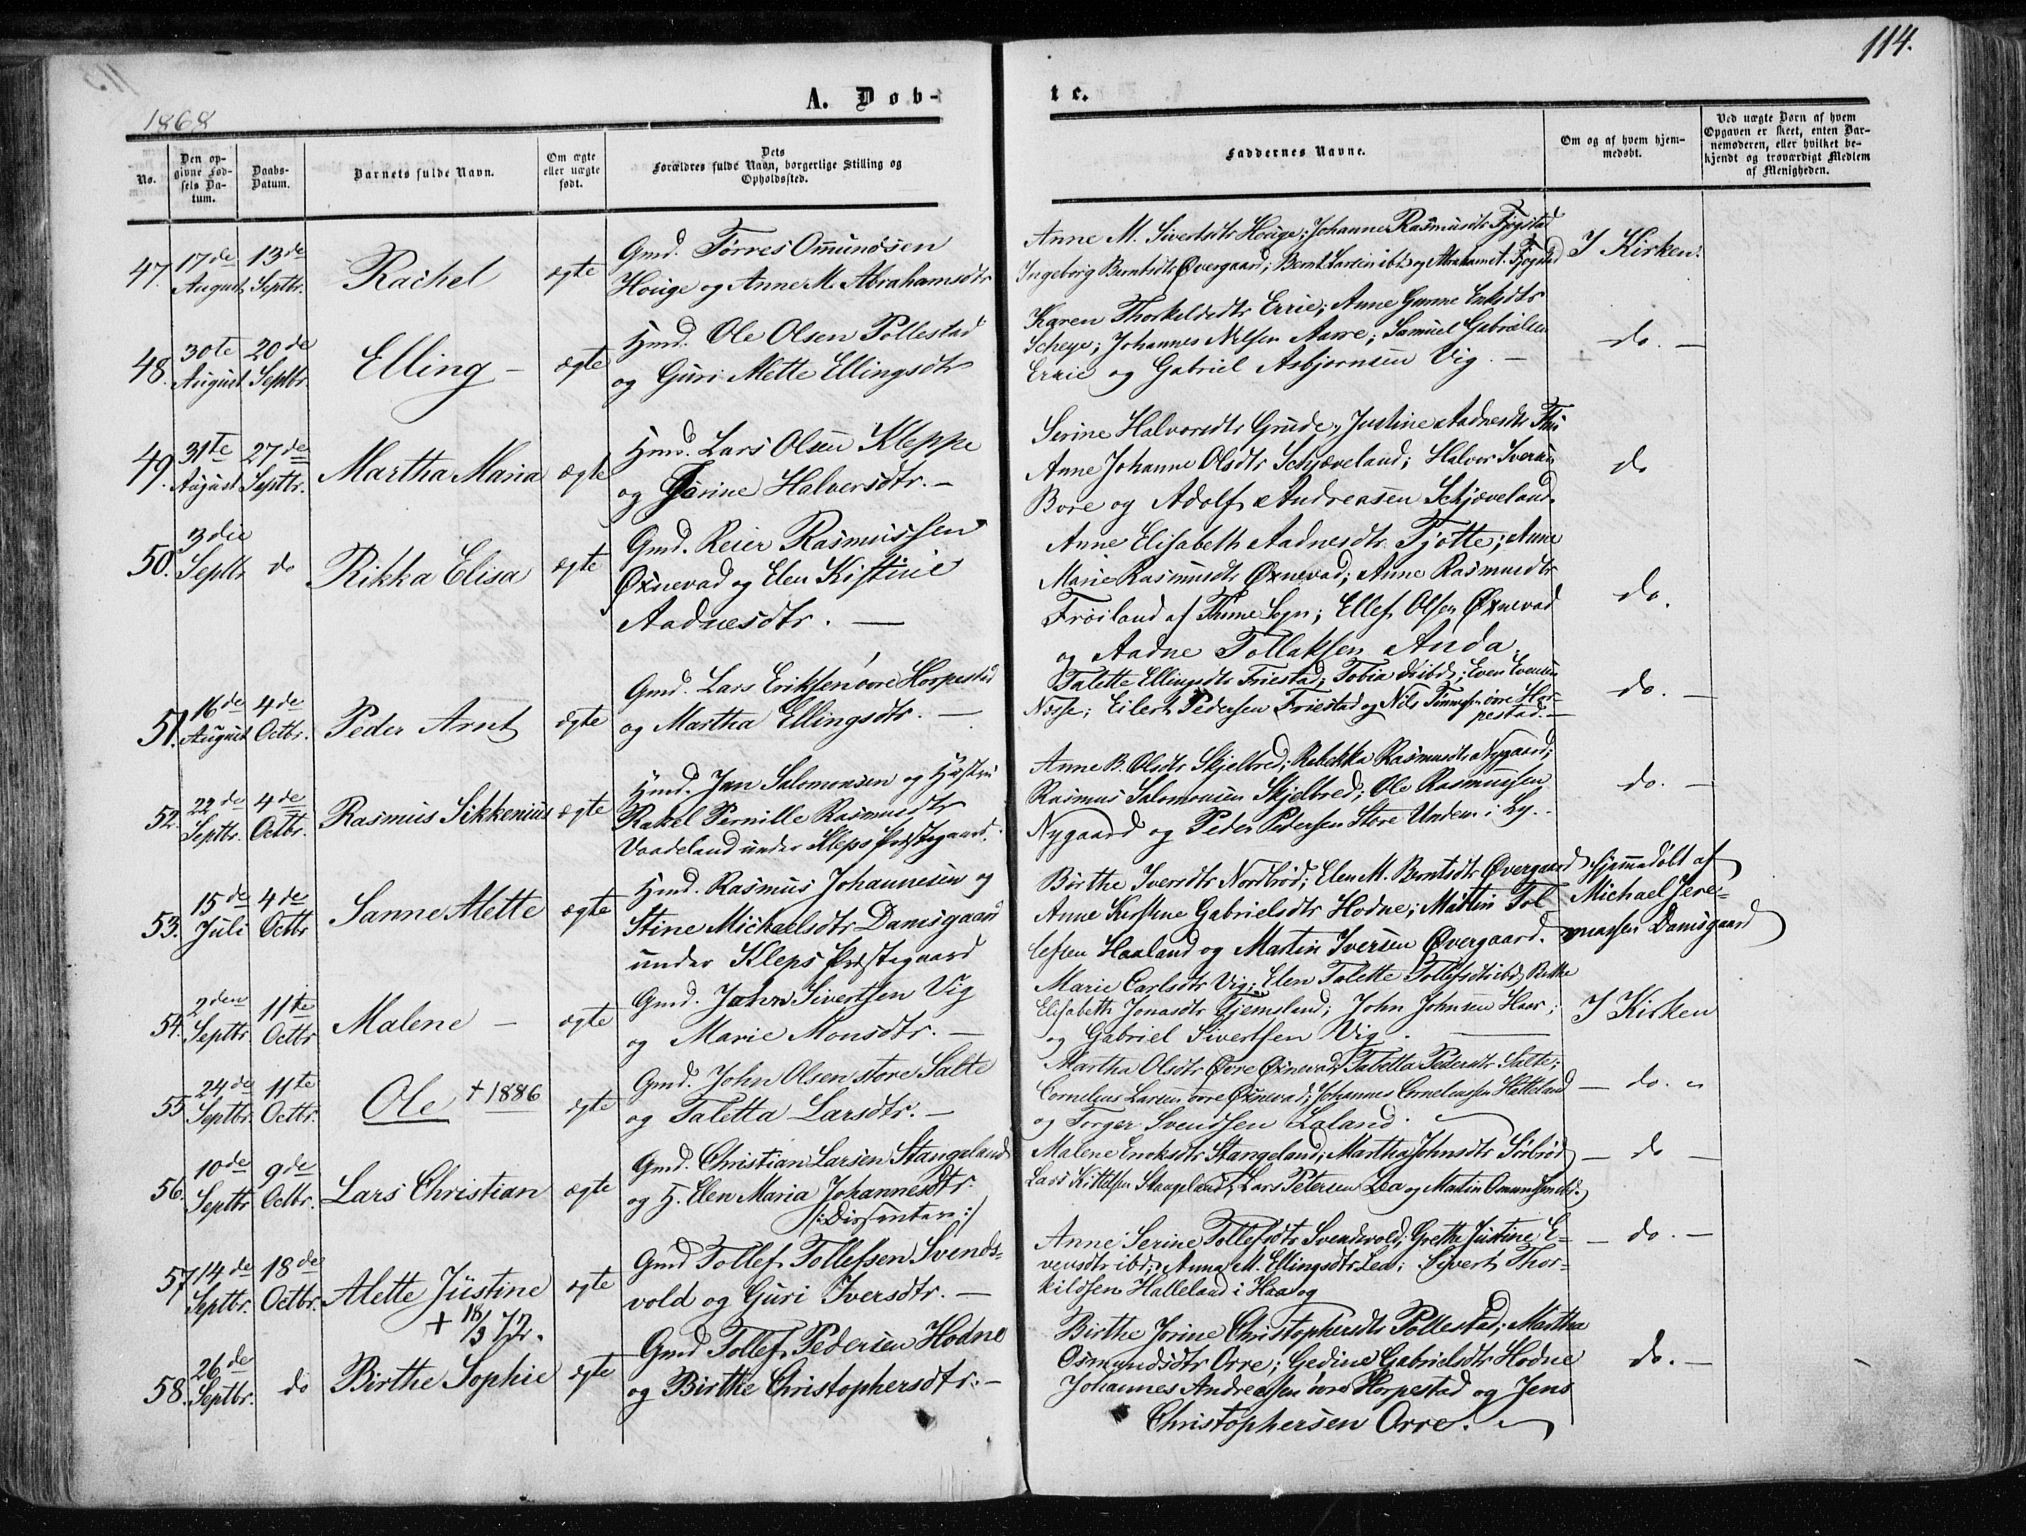 114.
1868
A. Døb-
te.
No.
Den opgivne Fødsels Datum.
Daabs-Datum.
Barnets fulde Navn.
Om ægte eller uægte født.
Dets Forældres fulde Navn, borgerlige Stilling og Opholdssted.
Faddernes Navne.
Om og af hvem hjemmedøbt.
Ved uægte Børn af hvem Opgaven er skeet, enten Barnemoderen, eller hvilket bekjendt og troværdigt Medlem af Menigheden.
47. 17de August 13de Septbr. Rachel ægte
Gmd. Tørres Omundsen
Houge og Anne M. Abrahamsdtr
Anne M. Sivertsdtr Houge; Johanne Rasmusdtr Fjogstad
Ingeborg Berntsdtr Øvergaard; Bernt Larsen ibd. og Abraham A. Fjogstad
I Kirken.
48. 30te August 20de Septbr. Elling – ægte
Hmd. Ole Olsen Pollestad
og Guri Mette Ellingsdtr
Karen Thorkeldsdtr Errie; Anne Gunne Eriksdtr
Scheye; Johannes Nilsen Aarre; Samuel Gabrielsen
Errie og Gabriel Asbjørnsen Vig. –
do. –
49. 31te August 27de Septbr. Martha Maria ægte
Hmd. Lars Olsen Kleppe
og Tørine Halversdtr. –
Serine Halvorsdtr Grude; Justine Aadnesdtr
Anne Johanne Olsdtr Schjæveland; Halvor Iversen
Bore og Adolf Andreasen Schjæveland.
do
50. 3die Septbr do Rikka Elisa ægte
Gmd. Reier Rasmussen
Øxnevad og Elen Kistine
Aadnesdtr. –
Anne Elisabeth Aadnesdtr Tjøtte; Anne
Marie Rasmusdtr Øxnevad; Anne Rasmusdtr
Frøiland af Thime Sogn; Ellef Olsen Øxnevad
og Aadne Tollaksen Anda.
do.
51. 16de August 4de Octbr. Peder Arnt ægte
Gmd. Lars Eriksen øvre Horpestad
og Martha Ellingsdtr. –
Talette Ellingsdtr Friestad; Tobia ibd; Even Evensen
Næsse; Eilert Pedersen Friestad og Nils Tønnesen øvre Hor-
pestad. –
do. –
52. 22de Septbr. 4de Octbr. Rasmus Sikkenius ægte
Hmd. Jan Salomonsen og Hustru
Rakel Pernille Rasmusdtr
Vaadeland under Kleps Præstegaard.
Anne B. Olsdtr Skjelbred; Rebekka Rasmusdtr Nygaard;
Rasmus Salomonsen Skjelbred; Ole Rasmussen
Nygaard og Peder Pedersen Store Undem i Ly..
do. –
53. 15de Juli 4de Octbr Sanne Mette ægte
Hmd. Rasmus Johannesen og
Stine Michaelsdtr Damsgaard
under Kleps Præstegaard
Birthe Iversdtr Nordbrød; Elen M. Berntsdtr Øvergaard
Anne Kirstene Gabrielsdtr Hodne; Martin Tol-
lefsen Haaland og Martin Iversen Øvergaard.
Hjemmedøbt af
Michael Jere-
miassen Damsgaard
54. 2den Septbr 11te Octbr Malene – ægte
Gmd. Jahn Sivertsen Vig
og Marie Monsdtr. –
Marie Carlsdtr Vig; Elen Talette Tollefsdtr ibd; Rikke
Elisabeth Jonasdtr Tjemsland; John Johnsen Haar;
og Gabriel Sivertsen Vig. –
I Kirken
55 24de Septbr. 11te Octbr. Ole + 1886 ægte
Gmd. John Olsen store Salte
og Taletta Larsdtr. –
Martha Olsdtr Øvre Øxnevad; Tabetta Pedersdtr Salte;
Cornelius Larsen øvre Øxnevad; Johannes Corneliussen Hatteland
og Torger Svendsen Laland.
– do. –
56. 10de Septbr 9de Octbr. Lars Christian ægte
Gmd. Christian Larsen Stangeland
og H. Elen Maria Johannesdtr.
/: Dissentere :/
Malene Enoksdtr Stangeland; Martha Johnsdtr Sørbrød
Lars Kittelsen Stangeland; Lars Petersen Lea og Martin Omundsen ibd.
– do –
57. 14de Septbr. 18de Octbr. Mette Justine ægte
+ 18/3 72.
Gmd Tollef Tollefsen Svends-
vold og Guri Iversdtr. –
Anne Serine Tollefsdtr Svendsvold; Grethe Justine E-
vensdtr ibd; Anna M. Ellingsdtr Lea; Sivert Thor-
kildsen Halleland i Haa og
– do. –
58. 26de Septbr. do Birthe Sophie ægte
Gmd Tollef Pedersen Hodne
og Birthe Christophersdtr. –
Birthe Jorine Christophersdtr Pollestad; Martha
Osmundsdtr Orre; Gedine Gabrielsdtr Hodne
Johannes Andreassen øvre Horpestad og Jens
Christophersen Orre. –
do. –